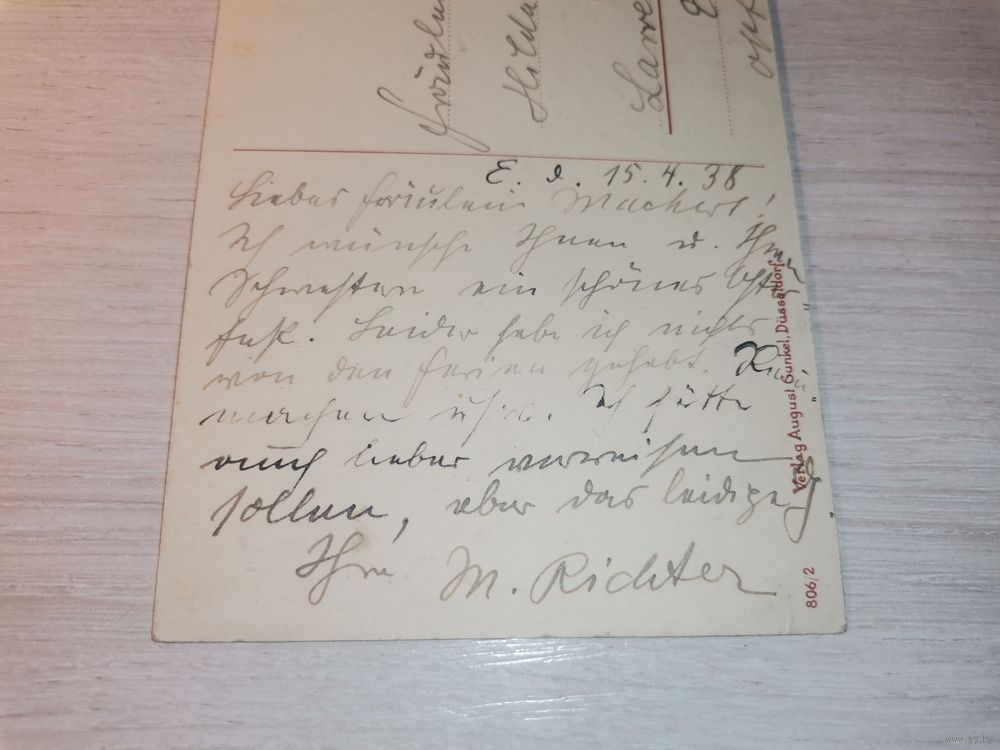 Fräulein
E. d. 15.4.38
Liebes Fräulein Mackert!
Ich wünsche Ihnen u. Ihren
Schwestern ein schönes Oster-
fest. Leider habe ich nichts
von den Ferien gehabt. Rein
machen usw. Ich hätte
auch lieber verreisen
sollen, aber das leidige G.
Ihre M. Richter
Verlag August Gunkel, Düsseldorf
806/2
www.ay.by